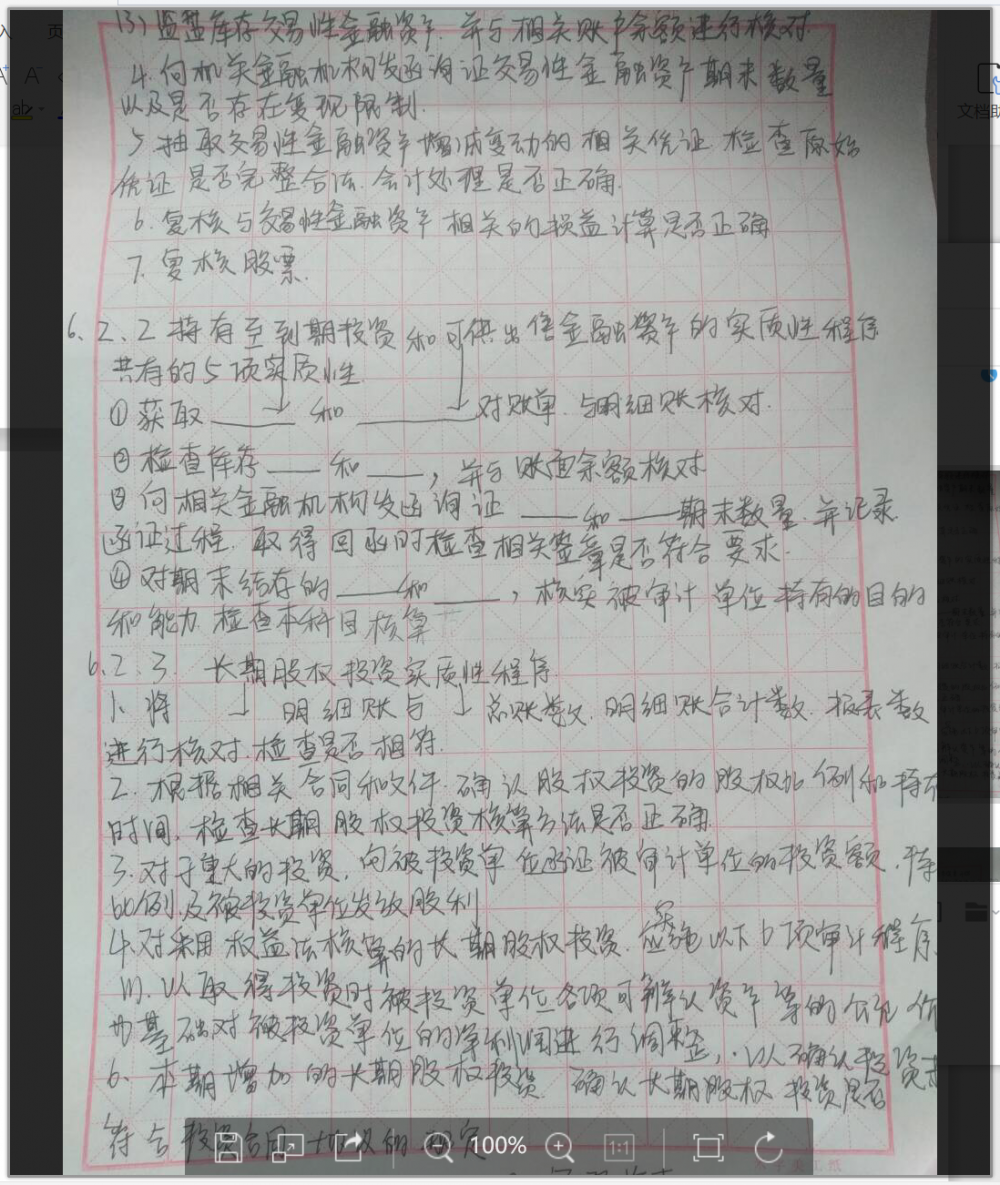 (3) 监盘库存交易性金融资产,并与相关账户余额进行核对.
4.向相关金融机构发函询证交易性金融资产期末数量
以及是否存在变现限制.
5.抽取交易性金融资产增减变动的相关凭证 检查原始
凭证是否完整合法.会计处理是否正确.
6.复核与交易性金融资产相关的损益计算是否正确
7.复核股票.
6.2.2持有至到期投资和可供出售金融资产的实质性程序
共有的5项实质性
①获取____和____对账单.与明细账核对.
②检查库存__和__,并与账面余额核对
③向相关金融机构发函询证__和__期末数量.并记录
函证过程.取得回函时检查相关签章是否符合要求.
④对期末结存的__和__,核实被审计单位持有的目的
和能力 检查本科目核算
6.2.3. 长期股权投资实质性程序
1、将 明细账与 总账数.明细账合计数.报表数
进行核对.检查是否相符.
2.根据相关合同和文件.确认股权投资的股权比例和持有
时间.检查长期股权投资核算方法是否正确
3.对于重大的投资.向被投资单位函证被审计单位的投资额.持
比例.及被投资单位发放股利
4.对采用权益法核算的长期股权投资.应实施以下6项审计程序
(1).以取得投资时被投资单位各项可辨认资产等的公允价
为基础对被投资单位的净利润进行调整,.以确认投资
6、本期增加的长期股权投资.确认长期股权投资是否
符合投资合同 的
100%
1:1